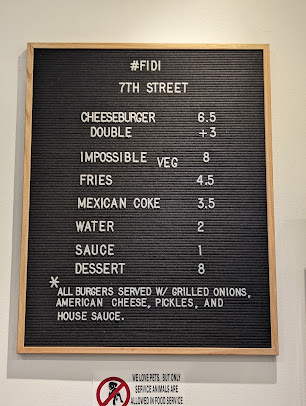 #FIDI
7TH STREET
CHEESEBURGER 6.5
DOUBLE +3
IMPOSSIBLE VEG 8
FRIES 4.5
MEXICAN COKE 3.5
WATER 2
SAUCE 1
DESSERT 8
*ALL BURGERS SERVED W/ GRILLED ONIONS,
AMERICAN CHEESE, PICKLES, AND
HOUSE SAUCE.
WE LOVE PETS, BUT ONLY
SERVICE ANIMALS ARE
ALLOWED IN FOOD SERVICE